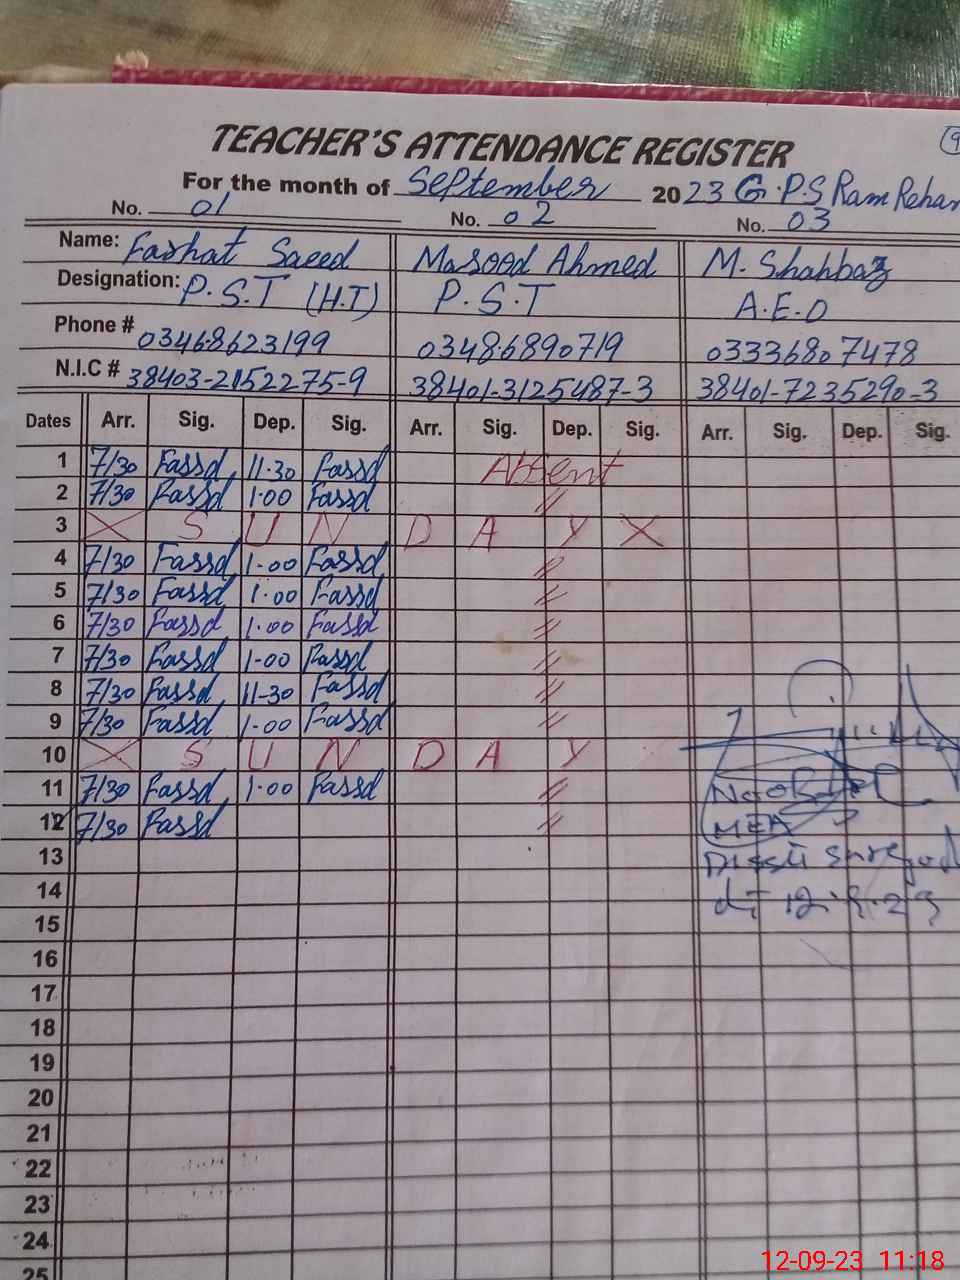 9
TEACHER'S ATTENDANCE REGISTER
For the month of September 2023 G.P.S Ram Rehan
No. 01 No. 02 No. 03
Name: Farhat Saeed Masood Ahmed M. Shahbaz
Designation: P.S.T (H.T) P.S.T A.E.O
Phone # 03468623199 0348-6890719 03336807478
N.I.C # 38403-2152275-9 38401-3125487-3 38401-7235290-3
Dates Arr. Sig. Dep. Sig. Arr. Sig. Dep. Sig. Arr. Sig. Dep. Sig.
1 7/30 Fassd 11-30 Fassd Absent
2 7/30 Fassd 1-00 Fassd //
3 X S U N D A Y X
4 7/30 Fassd 1-00 Fassd //
5 7/30 Fassd 1-00 Fassd //
6 7/30 Fassd 1-00 Fassd //
7 7/30 Fassd 1-00 Fassd //
8 7/30 Fassd 11-30 Fassd //
9 7/30 Fassd 1-00 Fassd //
10 X S U N D A Y
11 7/30 Fassd 1-00 Fassd //
12 7/30 Fassd //
MEA
13
14 dt 12.9.23
15
16
17
18
19
20
21
22
23
24
25
12-09-23 11:18